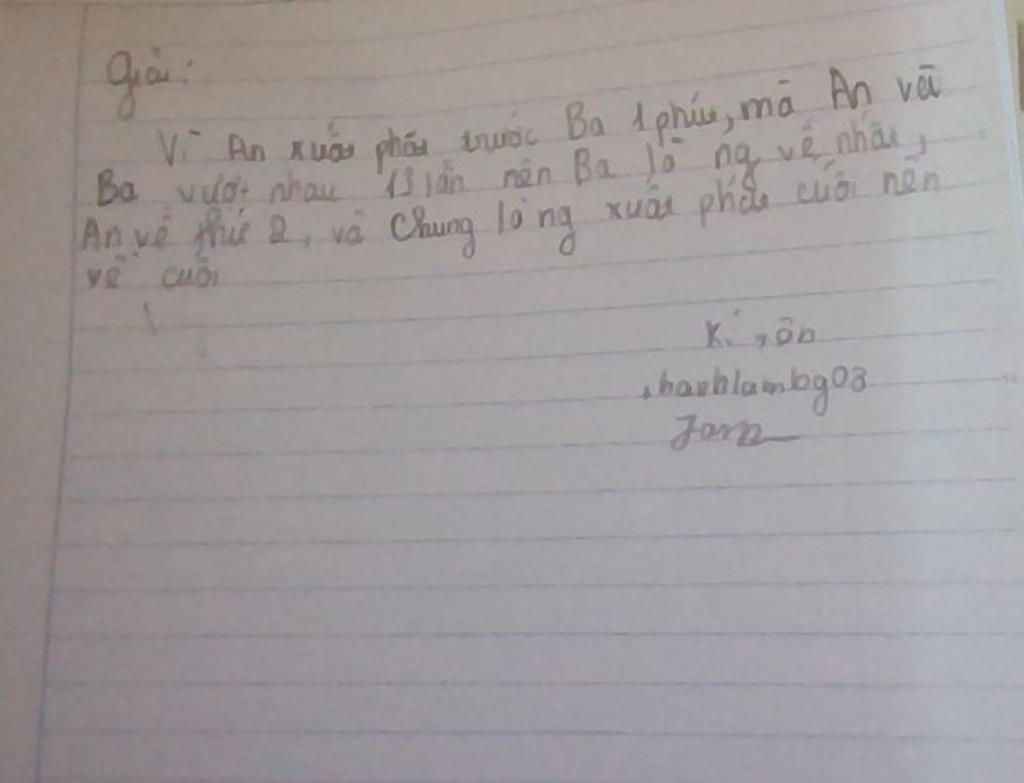 Giải:
Vì An xuất phát trước Ba 1 phút, mà An và
Ba vượt nhau 13 lần nên Ba là ng về nhất,
An về thứ 2, và Chung là ng xuất phát cuối nên
về cuối
Kí tên
thanhlambg03